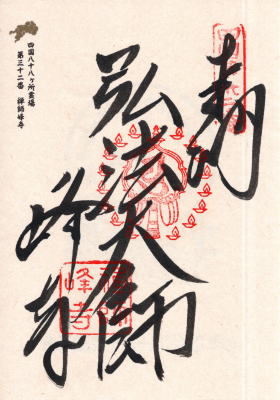 奉納
弘法大師
峰寺
禅師
峰寺
四国八十八ヶ所霊場
第三十二番 禅師峰寺